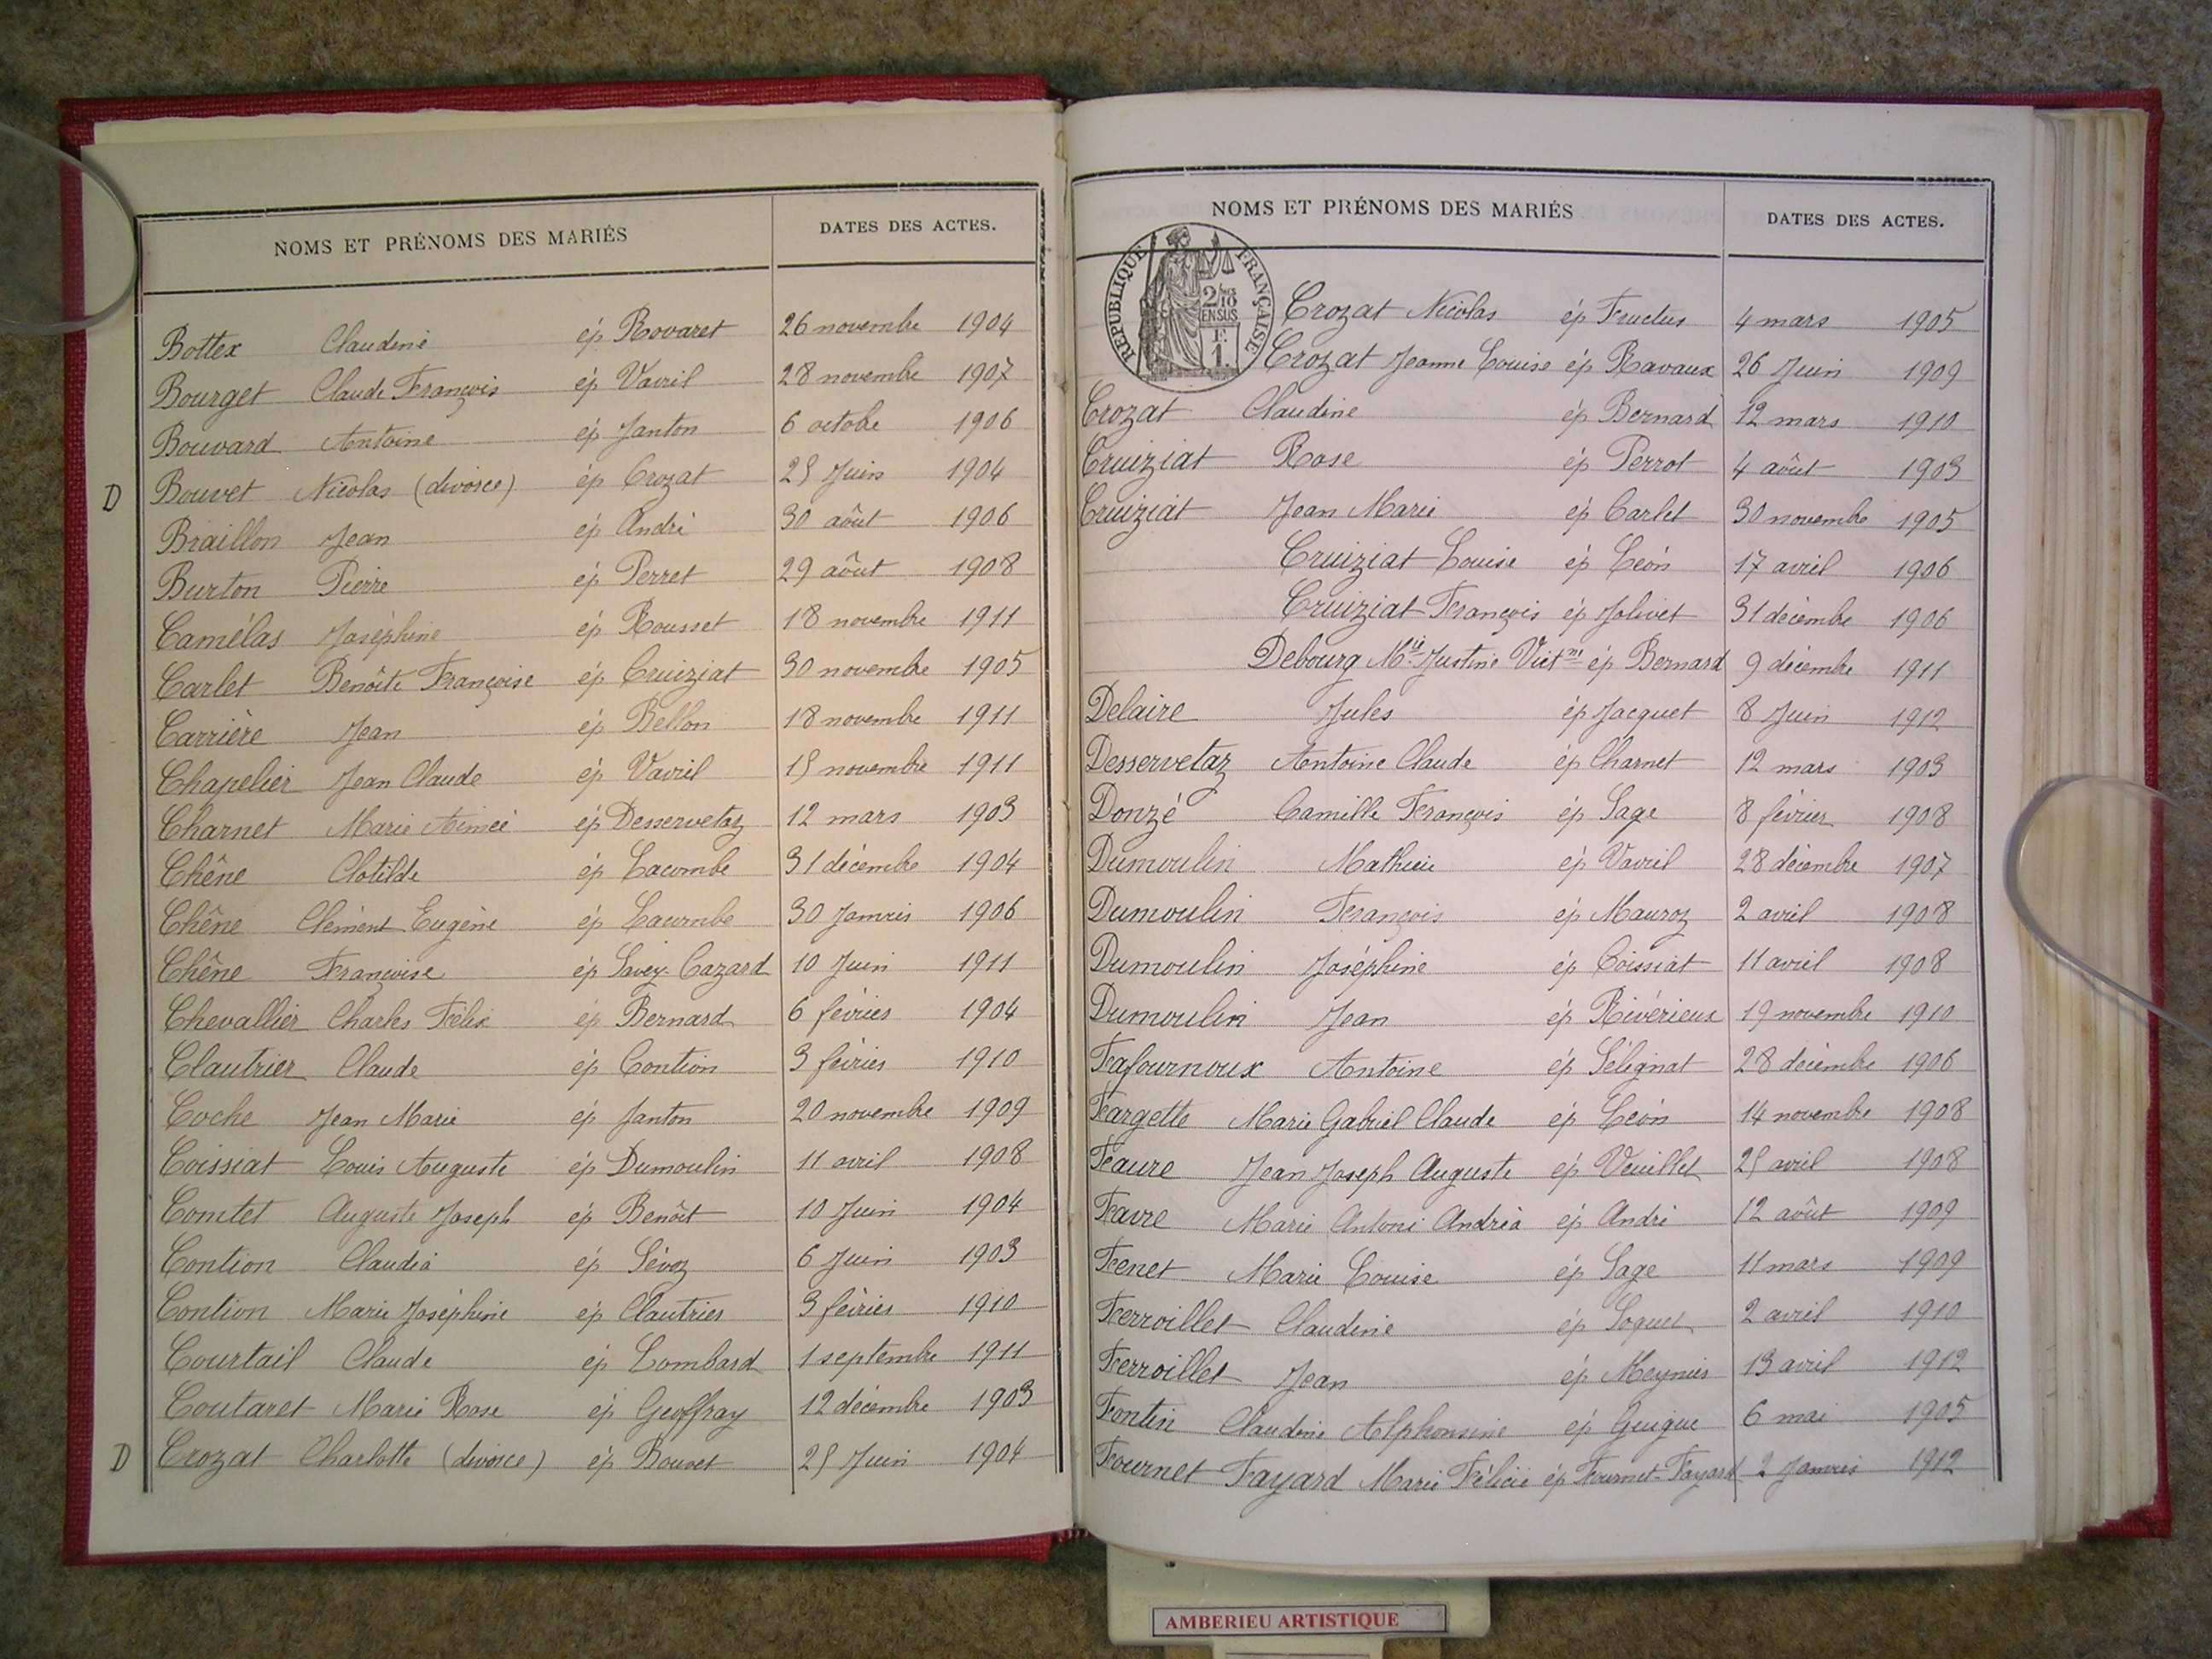 NOMS ET PRÉNOMS DES MARIÉS DATES DES ACTES.
Bottex Claudine ép Rovaret 26 novembre 1904
Bourget Claude François ép Vavril 28 novembre 1907
Bouvard Antoine ép Janton 6 octobre 1906
D Bouvet Nicolas (divorce) ép Crozat 25 Juin 1904
Braillon Jean ép André 30 août 1906
Burton Pierre ép Perret 29 août 1908
Camélas Joséphine ép Rousset 18 novembre 1911
Carlet Benôite Françoise ép Cruiziat 30 novembre 1905
Carrière Jean ép Bellon 18 novembre 1911
Chapelier Jean Claude ép Vavril 15 novembre 1911
Charnet Marie Aimée ép Desservetaz 12 mars 1903
Chêne Clotilde ép Lacombe 31 décembre 1904
Chêne Clément Eugène ép 30 Janvier 1906
Chêne Françoise ép Savey-Cazard 10 Juin 1911
Chevallier Charles Félix ép Bernard 6 février 1904
Clautrier Claude ép Contion 3 février 1910
Coche Jean Marie ép Janton 20 novembre 1909
Coissiat Louis Auguste ép Dumoulin 11 avril 1908
Comtet Auguste Joseph ép Benôit 10 Juin 1904
Contion Claudia ép Sévoz 6 Juin 1903
Contion Marie Joséphine ép Clautrier 3 février 1910
Courtail Claude ép Lombard 1 septembre 1911
Coutaret Marie Rose ép Geoffray 12 décembre 1903
D Crozat Charlotte (divorce) ép Bouvet 25 Juin 1904
NOMS ET PRÉNOMS DES MARIÉS DATES DES ACTES.
RÉPUBLIQUE FRANÇAISE
2/10
EN SUS
F.
1.
Crozat Nicolas ép Fructus 4 mars 1905
Crozat Jeanne Louise ép Ravaux 26 Juin 1909
Crozat Claudine ép Bernard 12 mars 1910
Cruiziat Rose ép Perrot 4 août 1903
Cruiziat Jean Marie ép Carlet 30 novembre 1905
Cruiziat Louise ép Léon 17 avril 1906
Cruiziat François ép Jolivet 31 décembre 1906
Debourg Mie Justine Victne ép Bernard 9 décembre 1911
Delaire Jules ép Jacquet 8 Juin 1912
Desservetaz Antoine Claude ép Charnet 12 mars 1903
Donzé Camille François ép Sage 8 février 1908
Dumoulin Mathieu ép Vavril 28 décembre 1907
Dumoulin François ép Mauroz 2 avril 1908
Dumoulin Joséphine ép Coissiat 11 avril 1908
Dumoulin Jean ép Rivérieux 19 novembre 1910
Fafournoux Antoine ép Sélignat 28 décembre 1906
Fargette Marie Gabriel Claude ép Léon 14 novembre 1908
Faure Jean Joseph Auguste ép Veuillet 25 avril 1908
Favre Marie Antoni Andréa ép André 12 août 1909
Fenet Marie Louise ép Sage 11 mars 1909
Ferroillet Claudine ép Soquet 2 avril 1910
Ferroillet Jean ép Meynier 13 avril 1912
Fontin Claudine Alphonsine ép Guigue 6 mai 1905
Fournet Fayard Marie Félicie ép Fournet-Fayard 2 Janvier 1912
AMBERIEU ARTISTIQUE